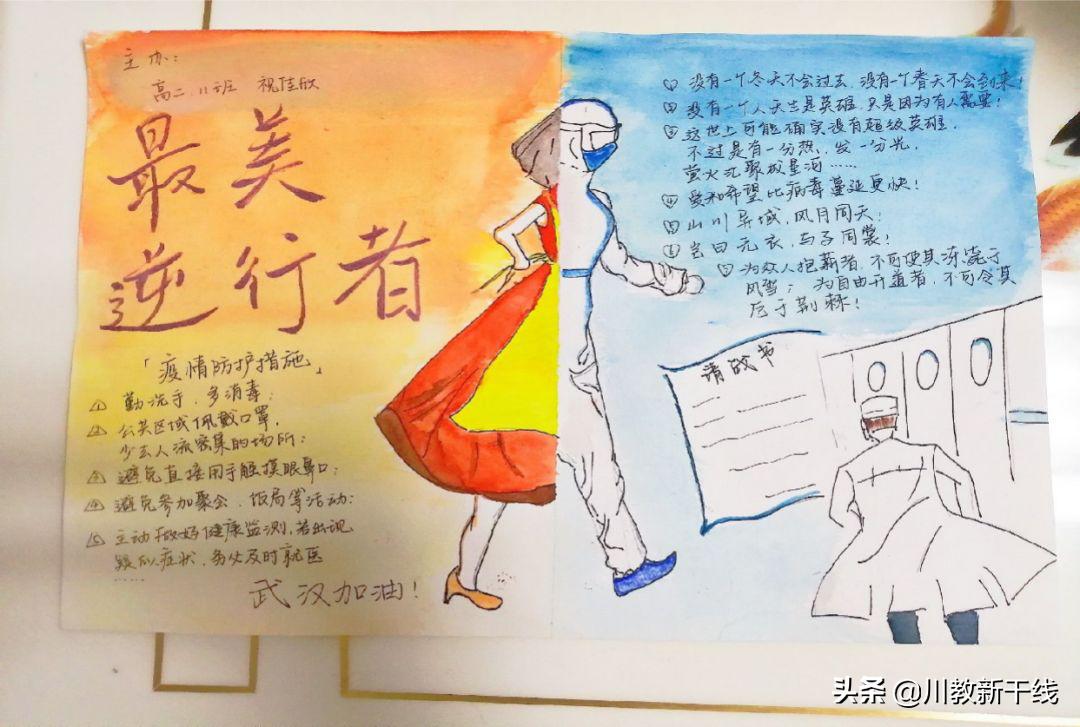 主办:
高二.11班 祝佳欣
最美
逆行者
「疫情防护措施」
① 勤洗手，多消毒；
② 公共区域佩戴口罩，
少去人流密集的场所；
③ 避免直接用手触摸眼鼻口；
④ 避免参加聚会、饭局等活动；
⑤ 主动做好健康监测，若出现
疑似症状，务必及时就医
……
武汉加油！
① 没有一个冬天不会过去，没有一个春天不会到来！
② 没有一个人天生是英雄，只是因为有人需要！
③ 这世上可能确实没有超级英雄，
不过是有一分热，发一分光，
萤火汇聚成星河……
④ 爱和希望比病毒蔓延更快！
⑤ 山川异域，风月同天；
⑥ 岂曰无衣，与子同裳！
⑦ 为众人抱薪者，不可使其冻毙于
风雪；为自由开道者，不可令其
厄于荆棘！
请战书
头条 @川教新干线